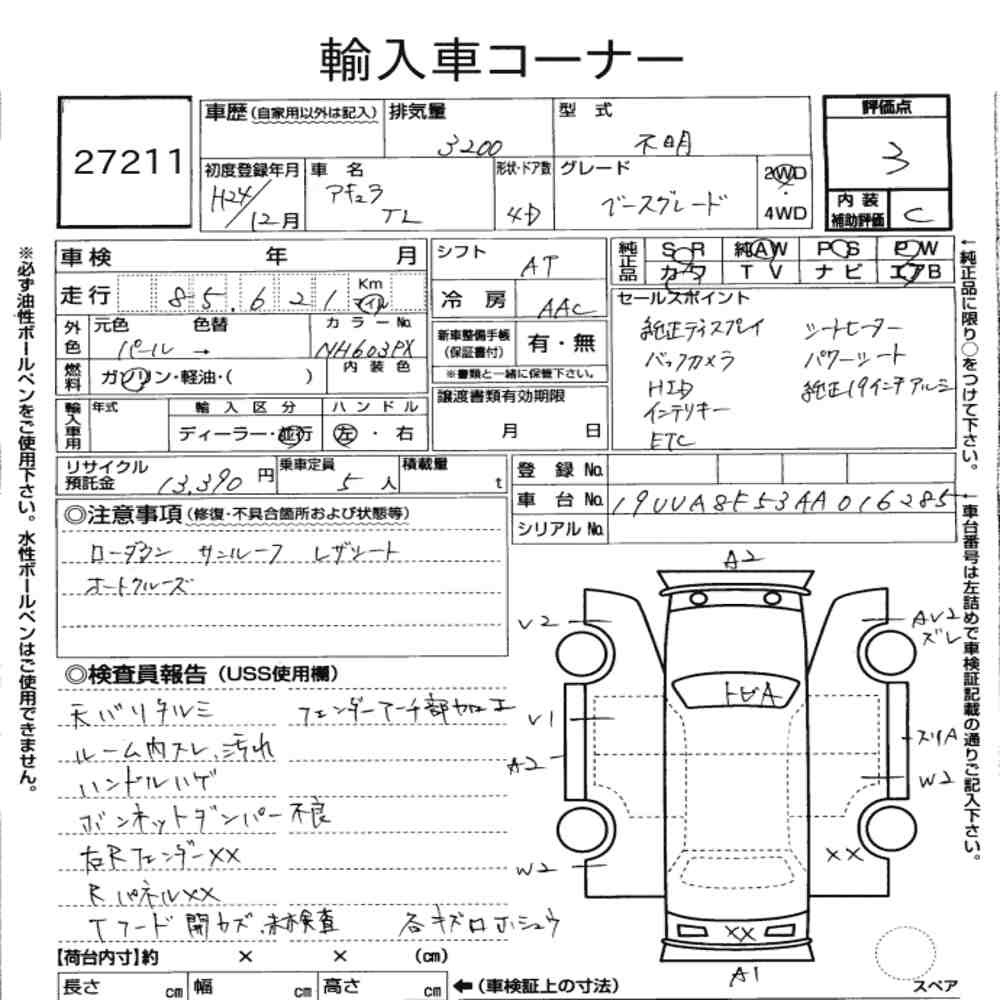 輸入車コーナー
27211
車歴(自家用以外は記入) 排気量 3200 型式 不明 評価点 3
初度登録年月 H24/12月 車名 アキュラ TL 形状・ドア数 4D グレード ベースグレード 2WD 4WD 内装補助評価 C
車検 年 月
走行 85,621 Km マイル
外色 元色 パール → 色替 カラーNo. NH603PX
燃料 ガソリン・軽油・( ) 内装色
輸入車用 年式 輸入区分 ディーラー・並行 ハンドル 左・右
リサイクル預託金 13,390円 乗車定員 5人 積載量 t
シフト AT
冷房 AAC
新車整備手帳(保証書付) 有・無
※書類と一緒に保管下さい。
譲渡書類有効期限
月 日
純正品 SR 純AW PS PW
カワ TV ナビ エアB
セールスポイント
純正ディスプレイ シートヒーター
バックカメラ パワーシート
HID 純正19インチアルミ
インテリキー
ETC
登録No.
車台No. 19UUA8F53AA016285
シリアルNo.
◎注意事項(修復・不具合箇所および状態等)
ローダウン サンルーフ レザシート
オートクルーズ
◎検査員報告(USS使用欄)
天バリタルミ フェンダーアーチ部加工
ルーム内スレ、汚れ
ハンドルハゲ
ボンネットダンパー不良
右RフェンダーXX
RパネルXX
Tフード開カズ、未検査 各キズロホシュウ
【荷台内寸】約 × × (cm)
長さ cm 幅 cm 高さ cm ←(車検証上の寸法)
A2
V2
AV2
ズレ
トビA
V1
スリA
A2
W2
XX
W2
XX
A1
スペア
※必ず油性ボールペンをご使用下さい。水性ボールペンはご使用できません。
←純正品に限り○をつけて下さい。
←車台番号は左詰めで車検証記載の通りご記入下さい。